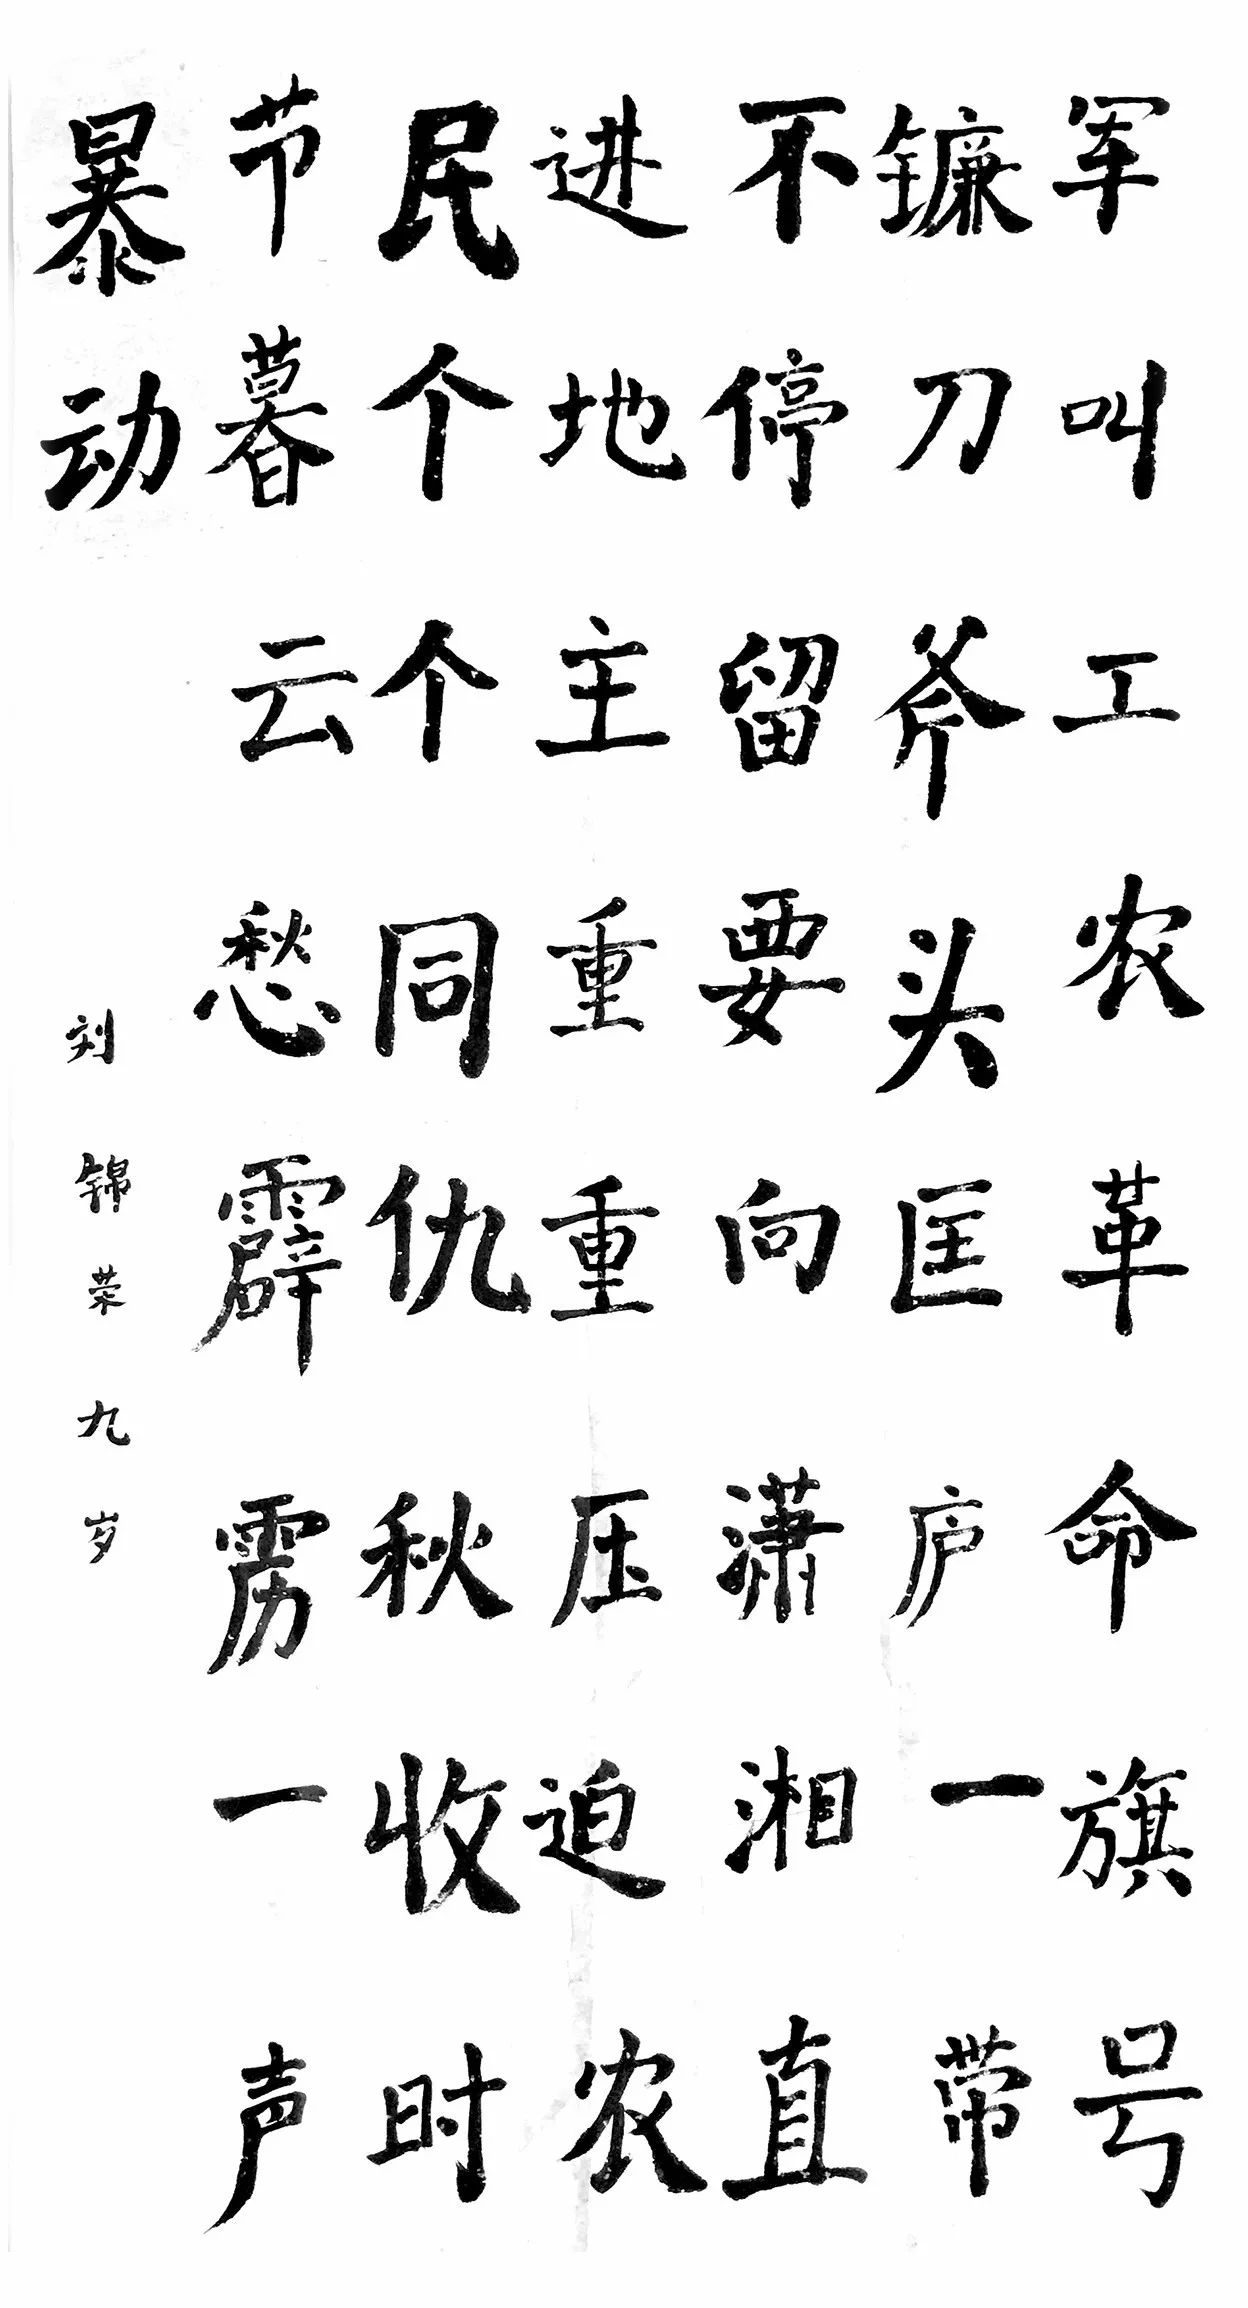 军叫工农革命旗号
镰刀斧头匡庐一带
不停留要向潇湘直
进地主重重压迫农
民个个同仇秋收时
节暮云愁霹雳一声
暴动
刘锦荣九岁